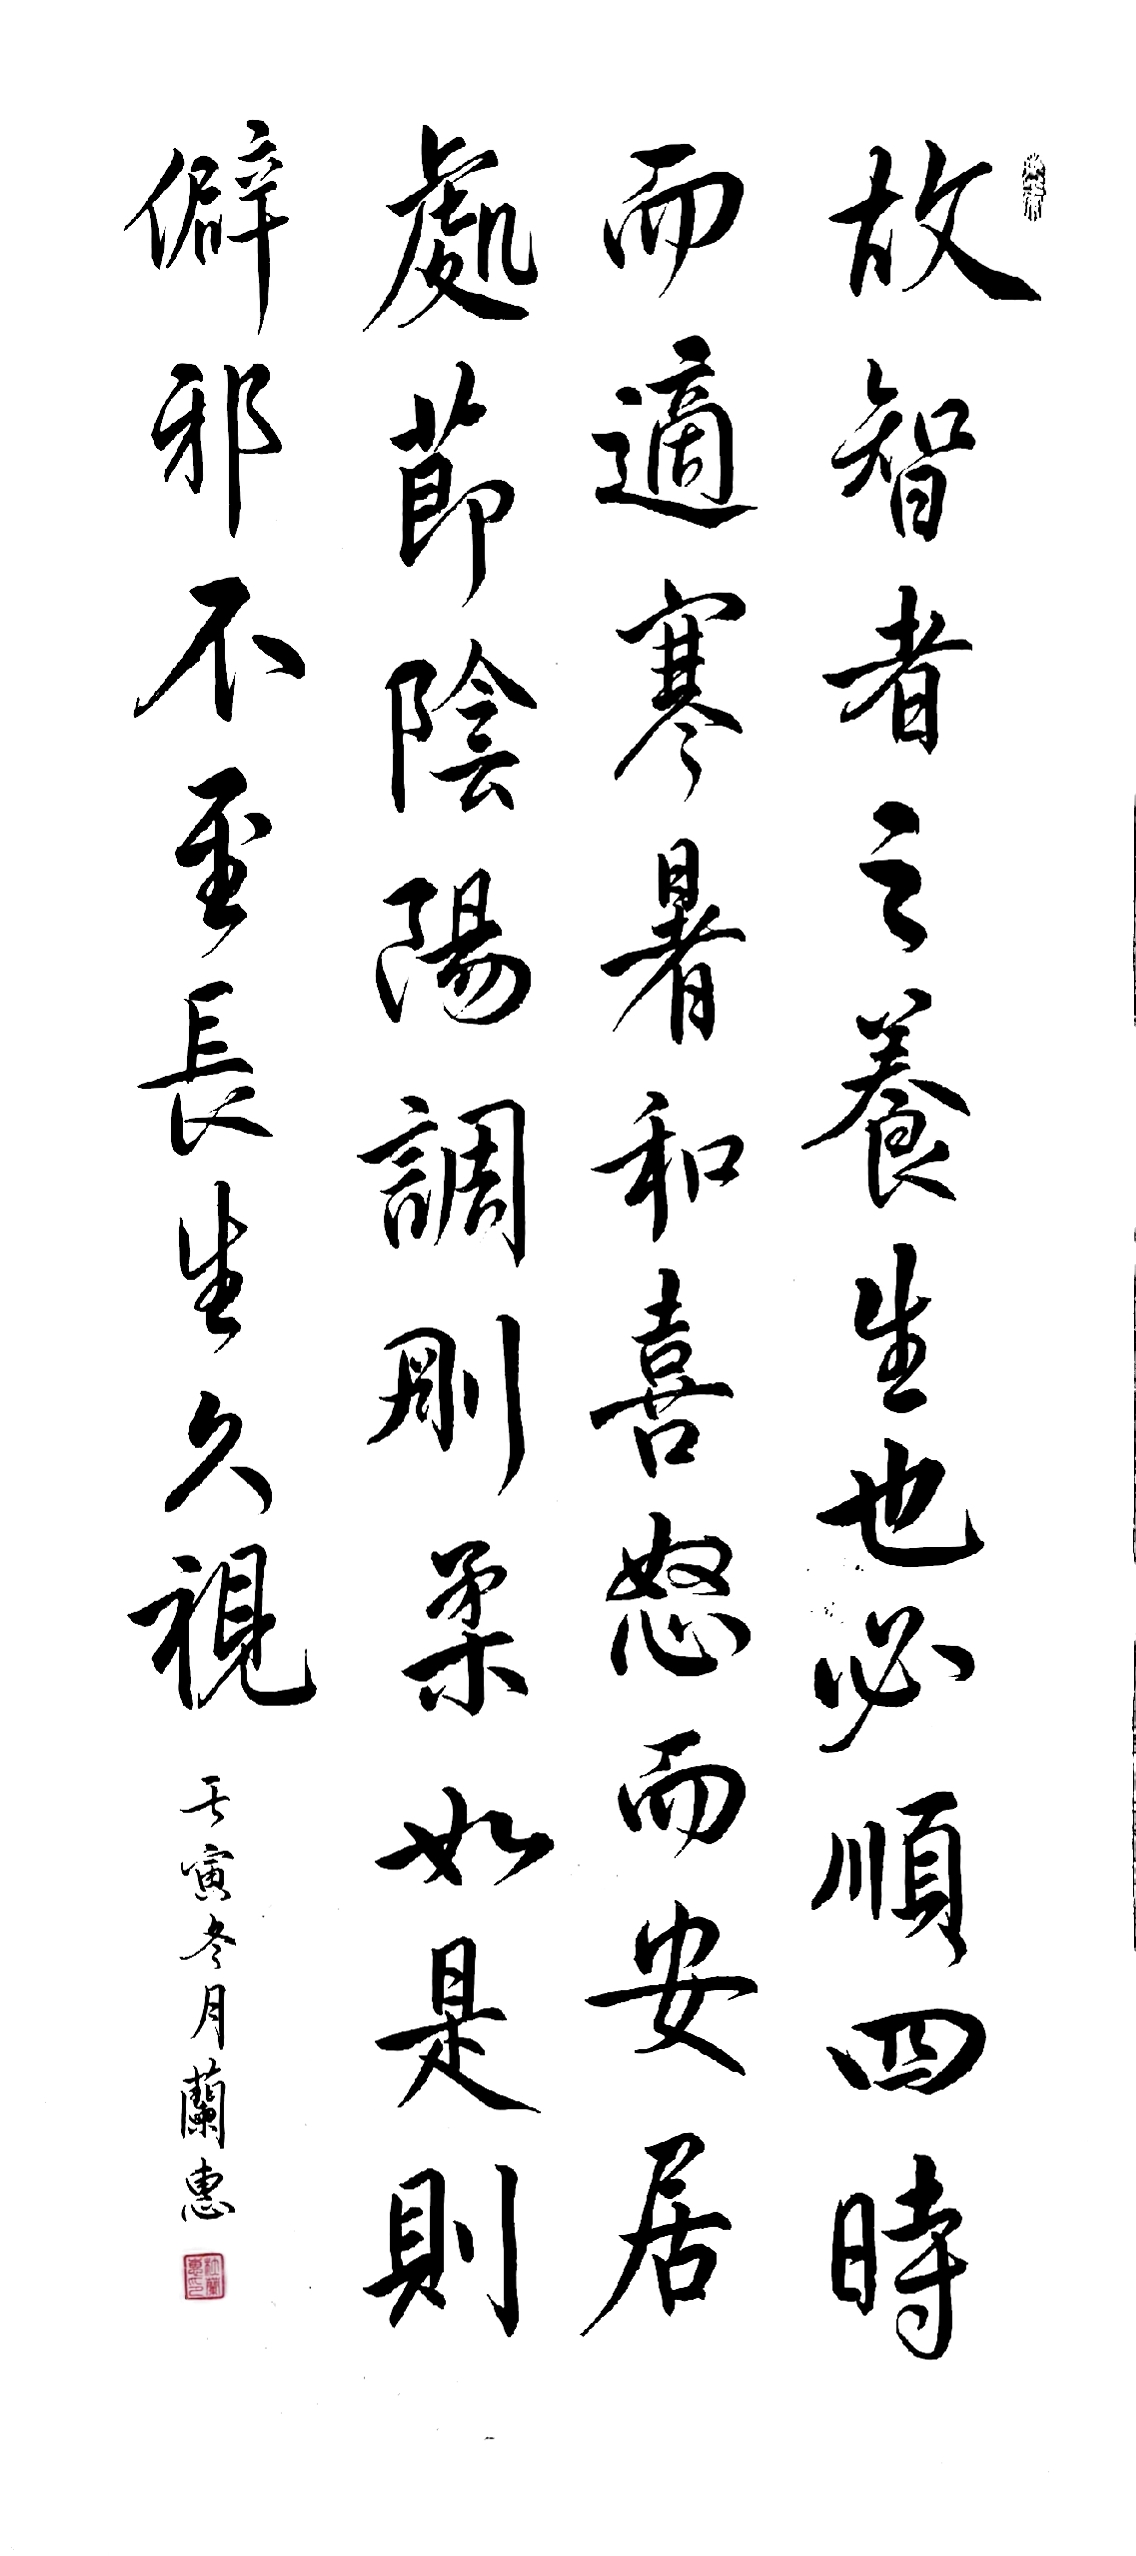 故智者之養生也必順四時
而適寒暑和喜怒而安居
處節陰陽調剛柔如是則
僻邪不至長生久視
壬寅冬月蘭惠